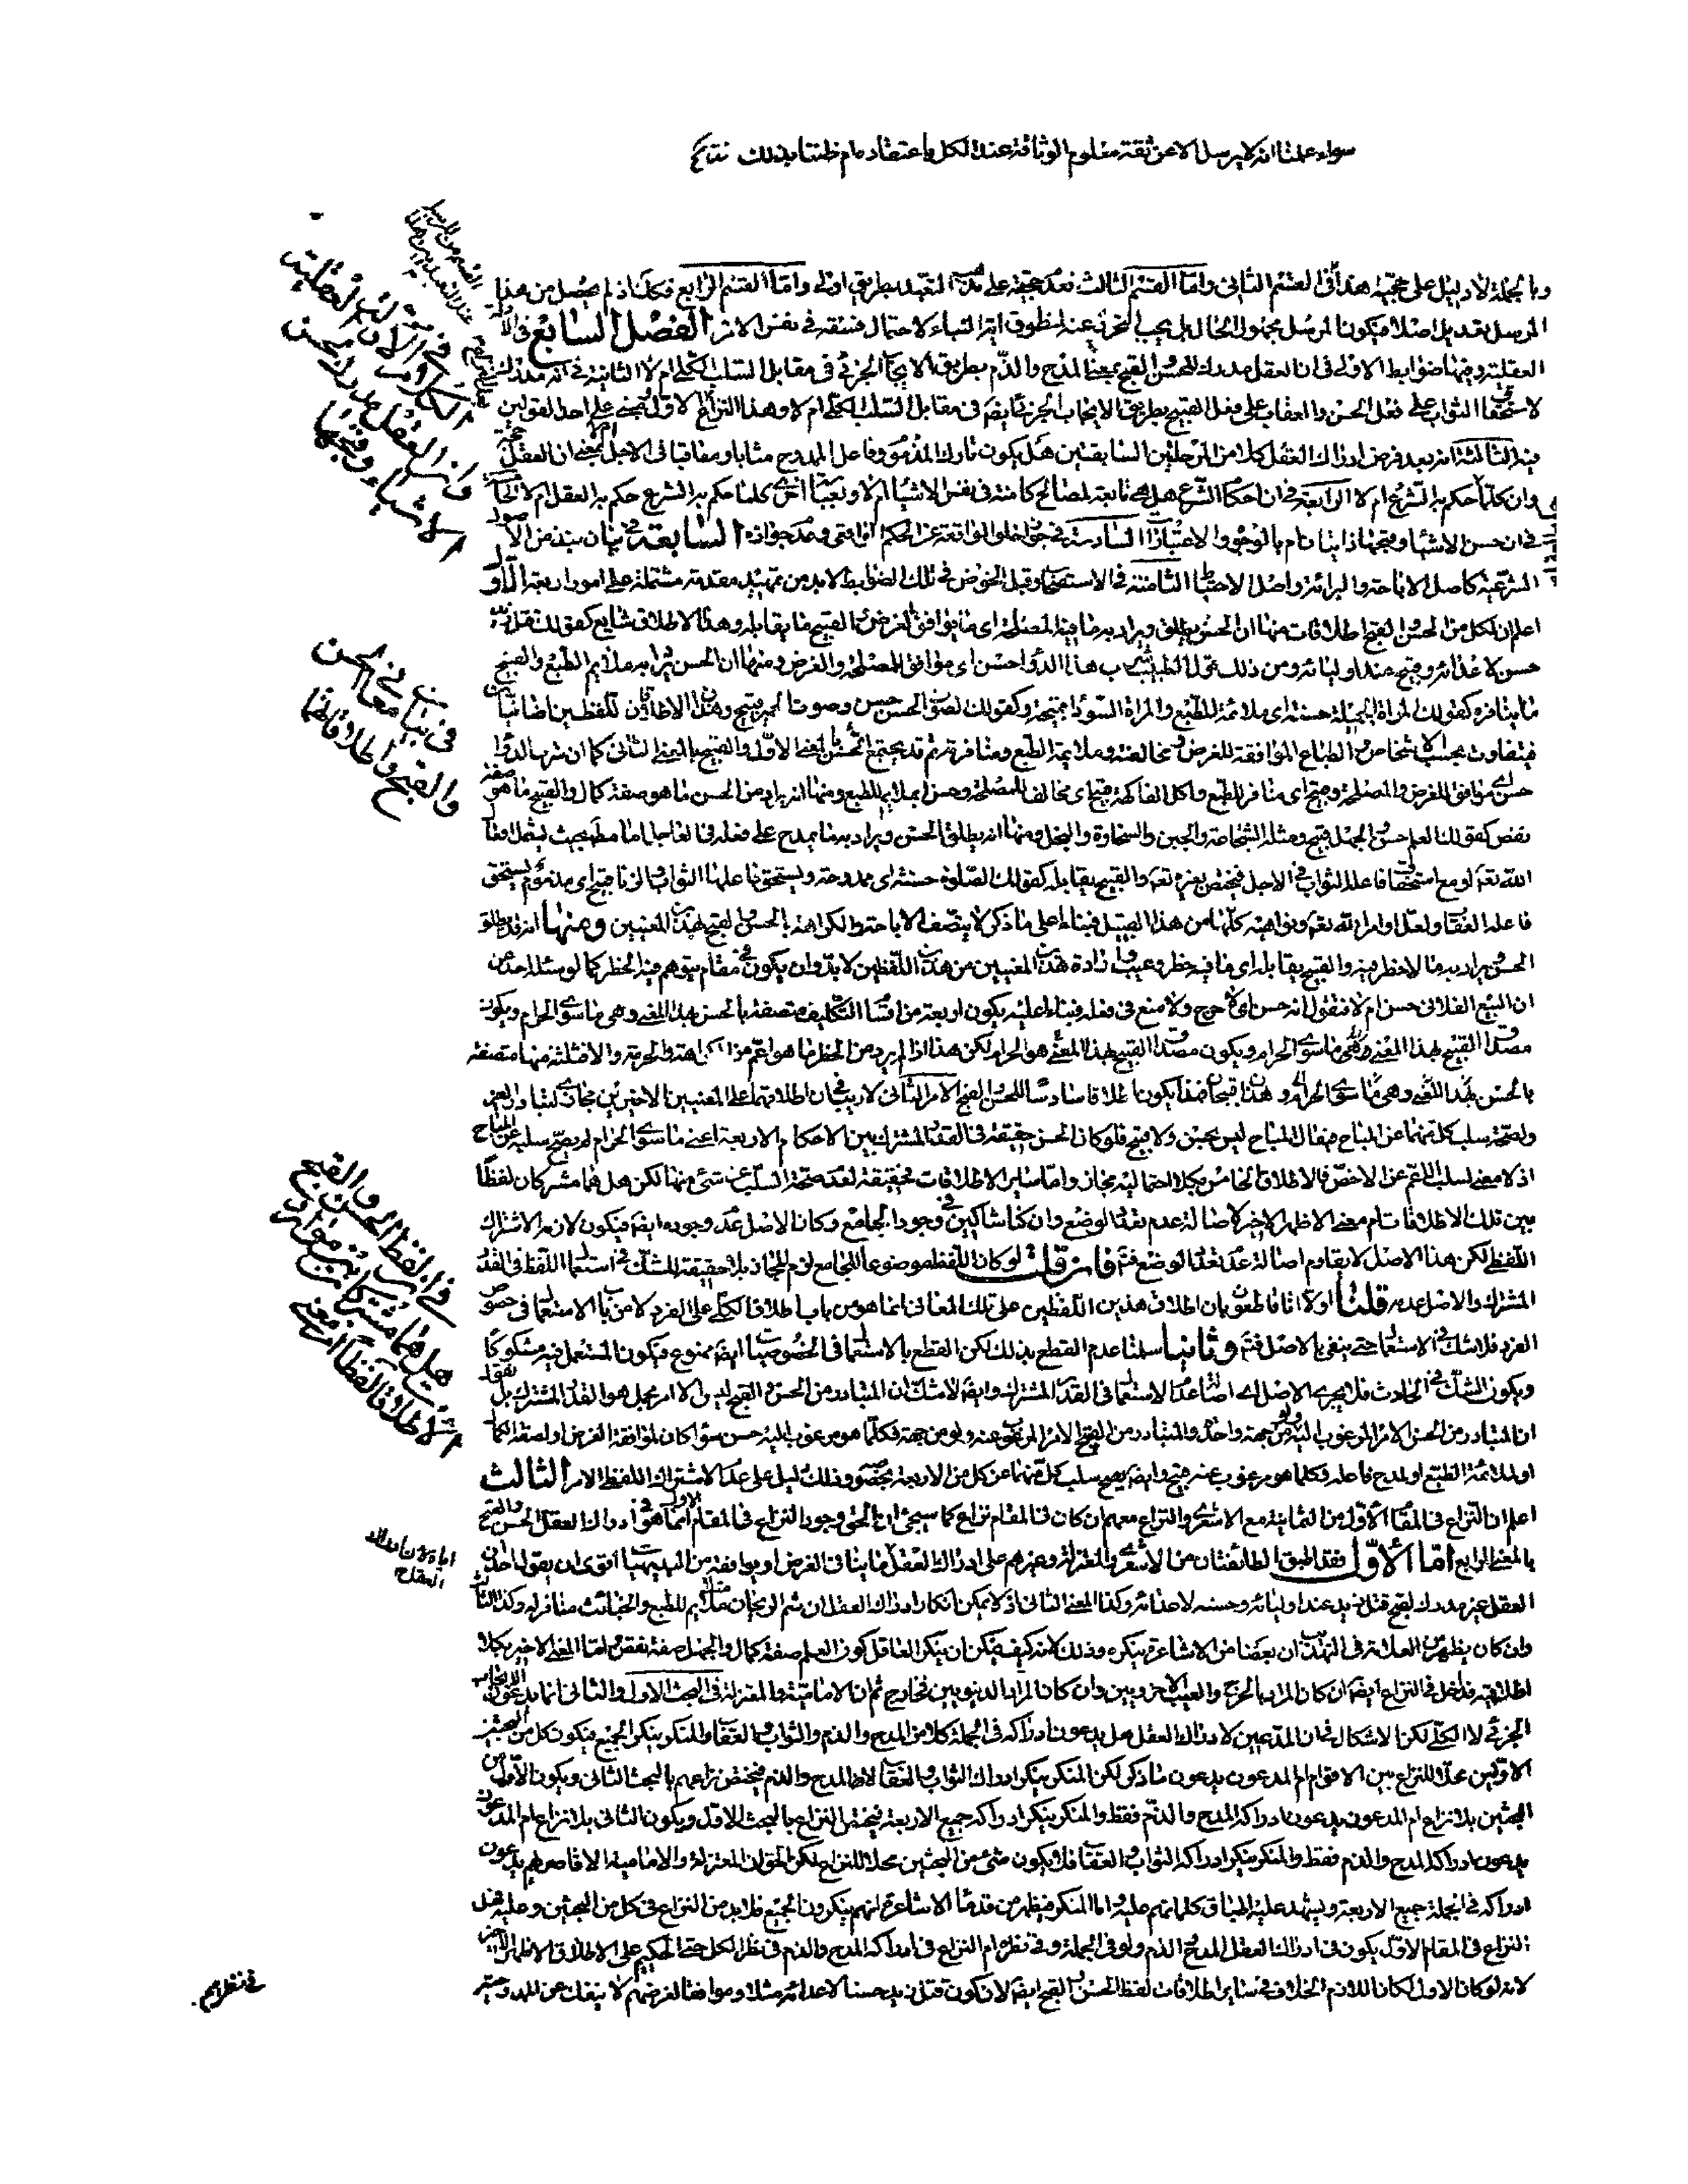 سواء علمنا انه لا يرسل الا عن ثقة معلوم الوثاقة عند الكل باعتقاده ام ظننا بذلك
وبالجملة لا دليل على حجية هذا فى القسم الثانى واما القسم الثالث فعدم حجيته على التعبد بطريق اولى واما القسم الرابع فكك اذ لم يحصل من هذا
المرسل تعديل اصلا فيكون المرسل مجهول الحال بل يجب التحرى عنه الفصل السابع فى الادلة
العقلية وفيها ضوابط الاولى فى ان العقل مدرك للحسن والقبح بمعنى المدح والذم بطريق الايجاب الجزئى فى مقابل السلب الكلى ام لا الثانية فى انه مدرك
لاستحقاق الثواب على فعل الحسن والعقاب على فعل القبيح بطريق الايجاب الجزئى ايضا فى مقابل السلب الكلى ام لا وهذا النزاع
الثالثة انه بعد فرض ادراك العقل كلا من المرحلتين السابقتين هل يكون تارك المذموم وفاعل الممدوح مثابا ومعاقبا فى الاجل بمعنى ان العقل حجة
وان كلما حكم به الشرع ام لا الرابعة فى ان احكام الشرع هل هى تابعة لمصالح كامنة فى نفس الاشياء ام لا وبعبارة اخرى كلما حكم به الشرع حكم به العقل ام لا
فى ان حسن الاشياء وقبحها ذاتيان ام بالوجوه والاعتبارات السادسة فى جواز خلو الواقعة عن الحكم السابعة فى بيان نبذ من الاصول
الشرعية كاصل الاباحة والبرائة واصل الاحتياط الثامنة فى الاستصحاب وقبل الخوض فى تلك الضوابط لابد من تمهيد مقدمة مشتملة على امور اربعة الاول
اعلم ان لكل من الحسن والقبح اطلاقات منها ان الحسن يطلق ويراد به ما فيه المصلحة اى ما يوافق الغرض والقبيح ما يقابله وهذا الاطلاق شايع كقولك قتل زيد
حسن لاعدائه وقبيح عند اوليائه ومن ذلك قول الطبيب شرب هذا الدواء حسن اى موافق للمصلحة والغرض ومنها ان الحسن يراد به ملايم الطبع والقبيح
ما ينافره كقولك المراة الجميلة حسنة اى ملائمة للطبع والمراة السوداء قبيحة وكقولك لصوت الحسن حسن وصوت الحمير قبيح وهذان الاطلاقان للفظين اضافيان
فيتفاوت بحسب الاشخاص والطباع الموافقة للغرض ومخالفته وملايمة الطبع ومنافرته ثم قد يجتمع الحسن بالمعنى الاول والقبيح بالمعنى الثانى كما ان شرب الدواء
حسن اى موافق للغرض والمصلحة وقبيح اى منافر للطبع واكل الفاكهة قبيح اى مخالف للمصلحة وحسن اى ملايم للطبع ومنها انه يراد من الحسن ما هو صفة كمال والقبيح ما هو صفة
نقص كقولك العلم حسن والجهل قبيح ومثله الشجاعة والجبن والسخاوة والبخل ومنها انه يطلق الحسن ويراد به ما يمدح على فعله فى العاجل
الله تعالى او مع استحقاق فاعله الثواب فى الاجل فيختص بغيره تعالى والقبيح يقابله كقولك الصلوة حسنة اى ممدوحة ويستحق فاعلها الثواب والزنا قبيح اى مذموم يستحق
فاعله العقاب ولعل اوامر الله تعالى ونواهيه كلها من هذا القبيل فبناء على ما ذكر لا يتصف الاباحة والكراهة بالحسن والقبح بهذين المعنيين ومنها انه قد يطلق
الحسن ويراد به ما لا حظر فيه والقبيح يقابله اى ما فيه حظر وعيب وارادة هذين المعنيين من هذين اللفظين لابد وان يكون فى مقام يتوهم فيه الحظر كما لو سئل احد من
ان البيع الفلانى حسن ام لا فتقول انه حسن اى لا حرج ولا منع فى فعله فبناء عليه يكون اربعة من اقسام التكليف متصفة بالحسن بهذا المعنى وهى ما سوى الحرام ويكون
مصداق القبيح بهذا المعنى هو الحرام لكن هذا اذا لم يرد من الحظر ما هو اعم من الكراهة والحرمة والا فثلثة منها متصفة
بالحسن بهذا المعنى الامر الثانى لا ريب فى ان اطلاقهما على المعنيين الاخيرين مجاز
ولصحة سلب كل منهما عن المباح فيقال المباح ليس بحسن ولا قبيح فلو كان الحسن حقيقة فى القدر المشترك بين الاحكام الاربعة اعنى ما سوى الحرام لم يصح سلبه عن المباح
اذ لا معنى لسلب الاعم عن الاخص فالاطلاق الخامس بكلا احتماليه مجاز واما ساير الاطلاقات فحقيقة لعدم صحة السلب عن شىء منها لكن هل هما مشتركان لفظا
بين تلك الاطلاقات ام معنى الاظهر الاخير لاصالة عدم تعدد الوضع وان كنا شاكين فى وجود الجامع وكان الاصل عدم وجوده ايضا فيكون لازمه الاشتراك
اللفظى لكن هذا الاصل لا يقاوم اصالة عدم تعدد الوضع فتم فان قلت لو كان اللفظ موضوعا للجامع لزم المجاز بلا حقيقة للشك فى استعمال اللفظ فى القدر
المشترك والاصل عدمه قلنا اولا انا قاطعون بان اطلاق هذين اللفظين على تلك المعانى انما هو من باب اطلاق الكلى على الفرد لا من باب الاستعمال فى خصوص
الفرد فلا شك فى الاستعمال حتى ينفى بالاصل فتم وثانيا سلمنا عدم القطع بذلك لكن القطع بالاستعمال فى الخصوصيات ايضا ممنوع فيكون المستعمل فيه مشكوكا
ويكون الشك فى الحادث فلا يجرى الاصل اى اصالة عدم الاستعمال فى القدر المشترك وايضا لا شك ان المتبادر من الحسن والقبح ليس الا امر مجمل هو القدر المشترك بل نقول
ان المتبادر من الحسن الامر المرغوب اليه ولو من جهة واحدة والمتبادر من القبح الامر المرغوب عنه ولو من جهة فكلما هو مرغوب اليه حسن سواء كان لموافقة الغرض او لصفة الكمال
او لملائمة الطبع او لمدح فاعله وكلما هو مرغوب عنه قبيح وايضا يصح سلب كل منهما عن كل من الاربعة بخصوصه وذلك دليل على عدم الاشتراك اللفظى الامر الثالث
اعلم ان النزاع فى المقام الاول من الثمانية مع الاشعرى والنزاع معهم ان كان فى المقام نزاع كما سيجئ ان الحق وجود النزاع فى المقام الاول انما هو فى ادراك العقل الحسن والقبح
بالمعنى الرابع اما الاول فقد اطبق الطائفتان من الاشعرى والمعتزلة وغيرهم على ادراك العقل ما ينافى الغرض او يوافقه من البديهيات
العقل غير مدرك لقبح قتل زيد عند اوليائه وحسنه لاعدائه وكذا المعنى الثانى اذ لا يمكن انكار ادراك العقل ان شم الريحان ملايم للطبع والخبائث منافر له وكذا الثالث
وان كان يظهر من العلامة فى التهذيب ان بعضا من الاشاعرة ينكره وذلك لانه كيف يمكن ان ينكر العاقل كون العلم صفة كمال والجهل صفة نقص واما المعنى الاخير بكلا
اطلاقيه فداخل فى النزاع ايضا ان كان المراد بالحرج والعيب الاخرويين وان كان المراد الدنيويين فخارج ثم ان الامامية والمعتزلة فى البحث الاول والثانى انما يدعون الايجاب
الجزئى لا الكلى لكن الاشكال فى ان المدعين لادراك العقل هل يدعون ادراكه فى الجملة كلا من المدح والذم والثواب والعقاب والمنكر ينكر الجميع فيكون كل من البحثين
الاولين محلا للنزاع بين الاقوام ام المدعون يدعون ما ذكر لكن المنكر ينكر ادراك الثواب والعقاب لا المدح والذم فيختص نزاعهم بالبحث الثانى ويكون الاول من
البحثين بلا نزاع ام المدعون يدعون ادراكه المدح والذم فقط والمنكر ينكر ادراكه جميع الاربعة فيختص النزاع بالبحث الاول ويكون الثانى بلا نزاع ام المدعون
يدعون ادراكه المدح والذم فقط والمنكر ينكر ادراكه الثواب والعقاب فلا يكون شىء من البحثين محلا للنزاع لكن الحق ان المعتزلة والامامية الا قاصرهم يدعون
ادراكه فى الجملة جميع الاربعة ويشهد عليه اطباق كلماتهم عليه واما المنكر فيظهر من قدماء الاشاعرة انهم ينكرون الجميع فلابد من النزاع فى كل من البحثين وعليه فهل
النزاع فى المقام الاول يكون فى ادراك العقل المدح والذم ولو فى الجملة وفى نظره ام النزاع فى ادراكه المدح والذم فى نظر الكل حتى الحكيم على الاطلاق الاظهر الاخير
لانه لو كان الاول لكان اللازم الخلاف فى ساير اطلاقات لفظ الحسن والقبح ايضا لان كون قتل زيد حسنا لاعدائه مثلا وموافقا لغرضهم لا ينفك عن المدح
فى الادلة العقلية
وان العقل مدرك لحسن
الاشياء وقبحها
فى بيان معانى الحسن
والقبح واطلاقاتهما
فى ان لفظ الحسن والقبح
هل هما مشتركان بين موارد
الاطلاق لفظا ام معنى
فى نظرهم